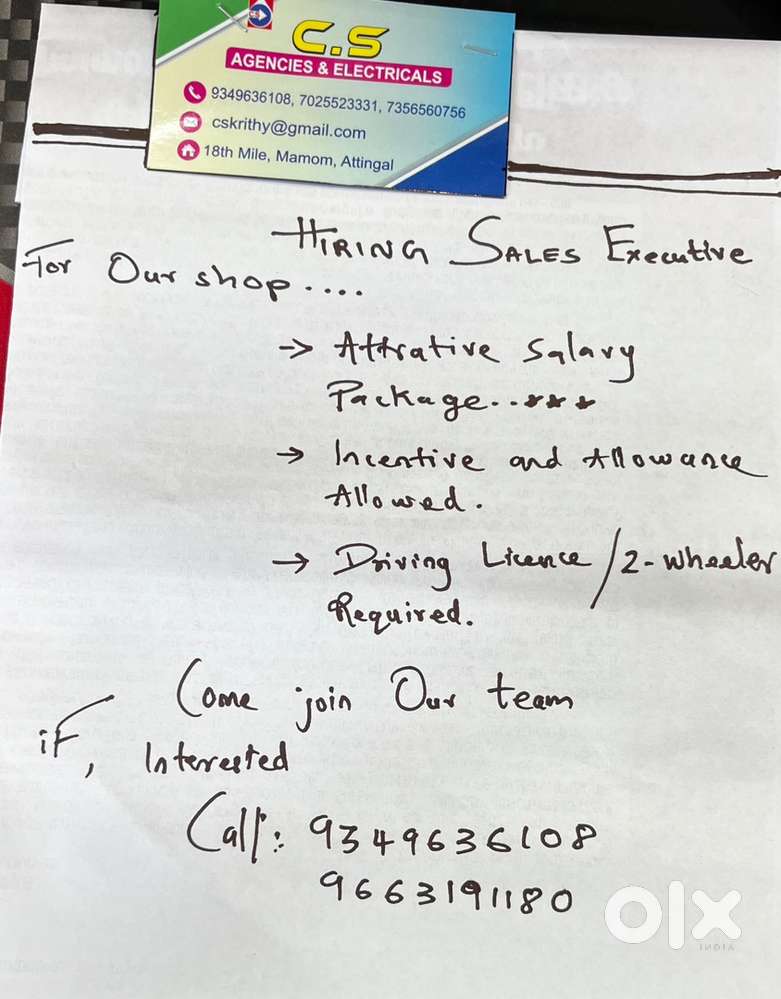 C.S
AGENCIES & ELECTRICALS
9349636108, 7025523331, 7356560756
cskrithy@gmail.com
18th Mile, Mamom, Attingal
HIRING SALES Executive
For Our shop....
→ Attrative Salary
Package..***
→ Incentive and Allowance
Allowed.
→ Driving Licence / 2-wheeler
Required.
Come join Our team
if, Interested
Call: 9349636108
9663191180
olx
INDIA